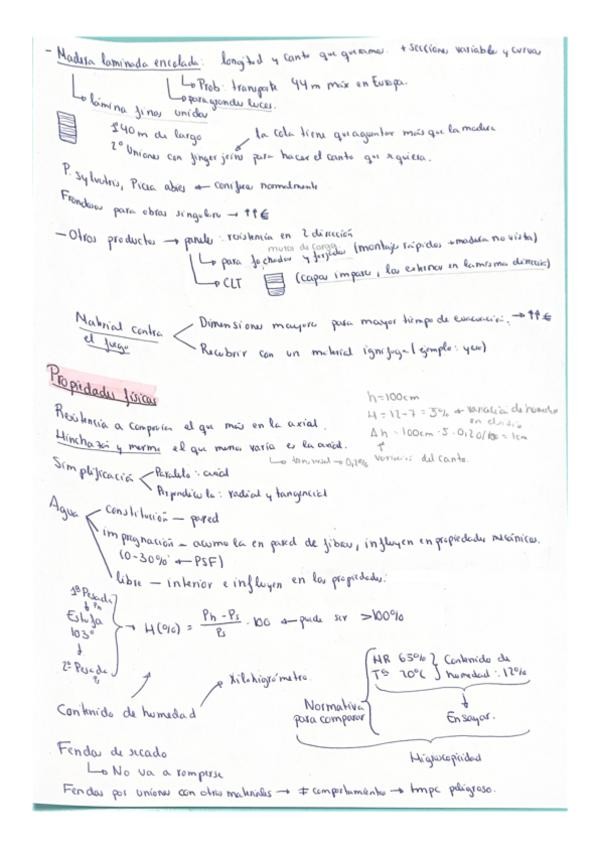 - Madera laminada encolada: longitud y canto que queramos. + secciones variable y curva
Prob: transporte 44m máx en Europa.
para grandes luces.
lámina finas unidas
1º 40m de largo
la cola tiene que aguantar más que la madera
2º Uniones con finger joins para hacer el canto que quiera.
P. Sylvestris, Picea abies ← coníferas normalmente
Frondosas para obras singulares → ↑↑€
- Otros productos → paneles: resistencia en 2 dirección
muros de carga
para fachadas y forjados (montaje rápidos + madera no vista)
CLT (capas impares, las externas en la misma dirección)
Material contra el fuego
Dimensiones mayores para mayor tiempo de evacuación. → ↑↑€
Recubrir con un material ignífuga (ejemplo: yeso)
Propiedades físicas
h=100cm
H = 12-7 = 5% → variación de humedad
en
Δh = 100cm · 5 · 0,20/100 = 1cm
variación del canto.
Resistencia a compresión el que más en la axial.
Hinchazón y merma el que menos varía es la axial.
→ 0,2%
Simplificación
Paralelo: axial
Perpendicular: radial y tangencial
Agua
constitución — pared
impregnación — acumula en pared de fibras, influyen en propiedades mecánicas.
(0-30% ← PSF)
libre — interior e influyen en las propiedades.
1ª Pesada
Ph
Estufa
103º
2ª Pesada
Ps
→ H(%) = Ph - Ps / Ps · 100 ← puede ser >100%
Contenido de humedad
Xilohigrómetro
Normativa para comparar
HR 65%
Tº 20ºC
Contenido de humedad: 12%
Ensayar.
Higroscopicidad
Fendas de secado
No va a romperse
Fendas por uniones con otros materiales → ≠ comportamiento → peligroso.